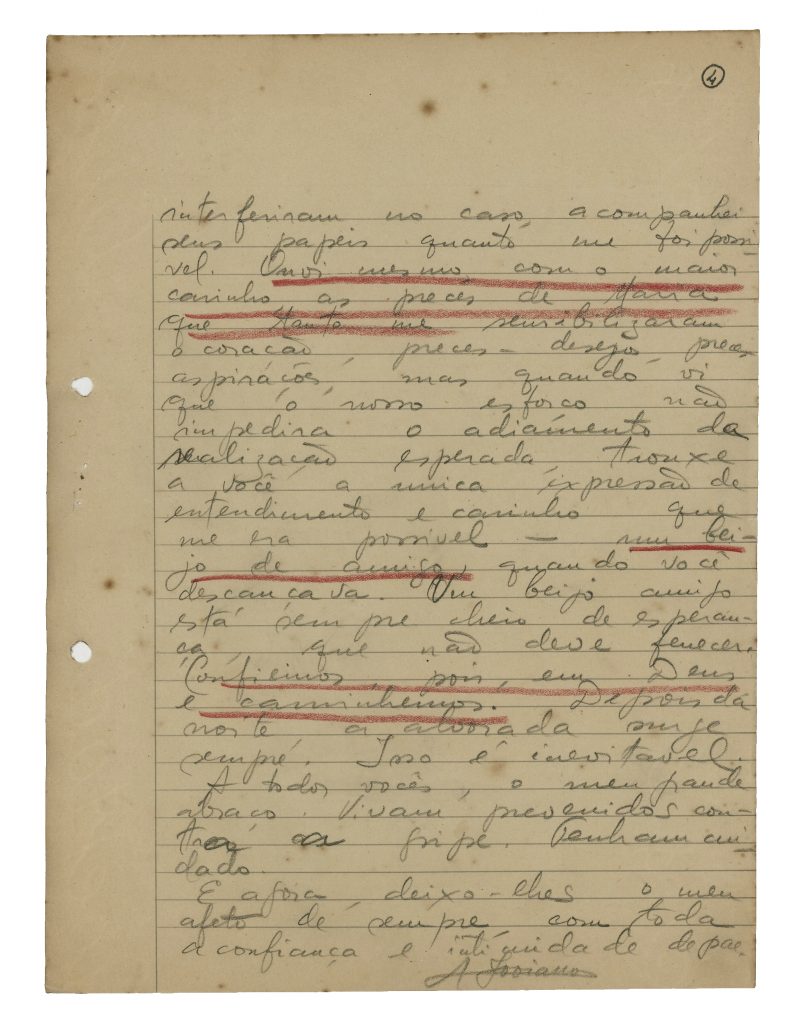 4
interferiram no caso, acompanhei
seus papeis quanto me foi possi-
vel. Ouvi mesmo, com o maior
carinho as preces de Maria
que tanto me sensibilizaram
o coração, preces-desejos, preces
aspirações, mas quando vi
que o nosso esforço não
impedira o adiamento da
realização esperada, trouxe
a você a unica expressão de
entendimento e carinho que
me era possivel — um bei-
jo de amigo, quando você
descançava. Um beijo amigo
está sempre cheio de esperan-
ça, que não deve fenecer.
Confiemos, pois, em Deus
e caminhemos. Depois da
noite a alvorada surge
sempre. Isso é inevitavel.
A todos vocês, o meu grande
abraço. Vivam prevenidos con-
tra a gripe. Tenham cui-
dado.
E agora, deixo-lhes o meu
afeto de sempre, com toda
a confiança e intimidade de pae.
A